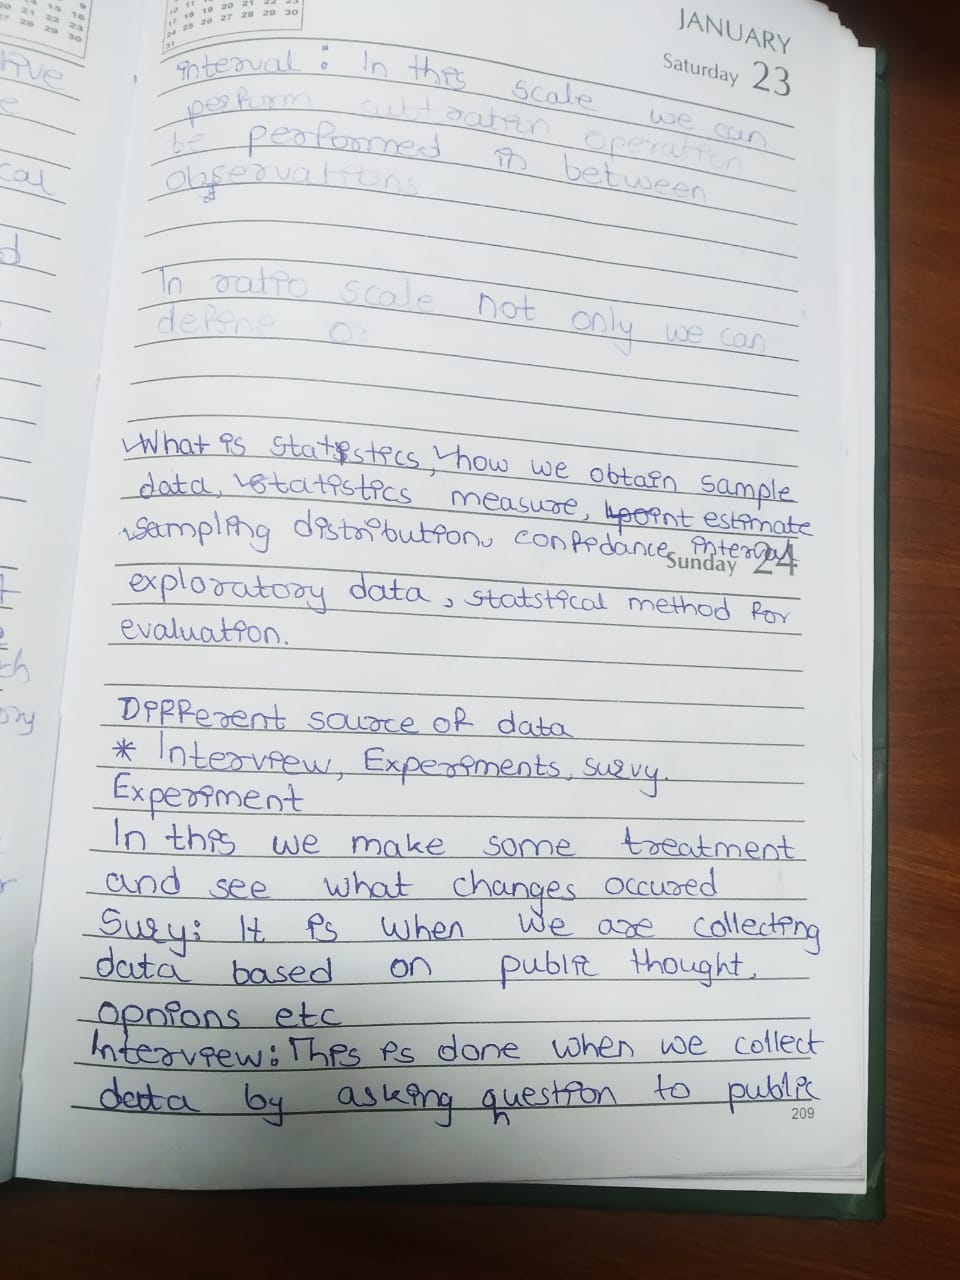 JANUARY
Saturday 23
interval : In this scale we can
perform subtration operation
be performed in between
observations
In ratio scale not only we can
define o
What is statistics, how we obtain sample
data, statistics measure, point estimate
sampling distribution, confedance interval
Sunday 24
exploratory data, statstical method for
evaluation.
Different source of data
* Interview, Experiments, survy.
Experiment
In this we make some treatment
and see what changes occured
Sury: It is when we are collecting
data based on public thought,
opnions etc
Interview: This is done when we collect
data by asking question to public
209